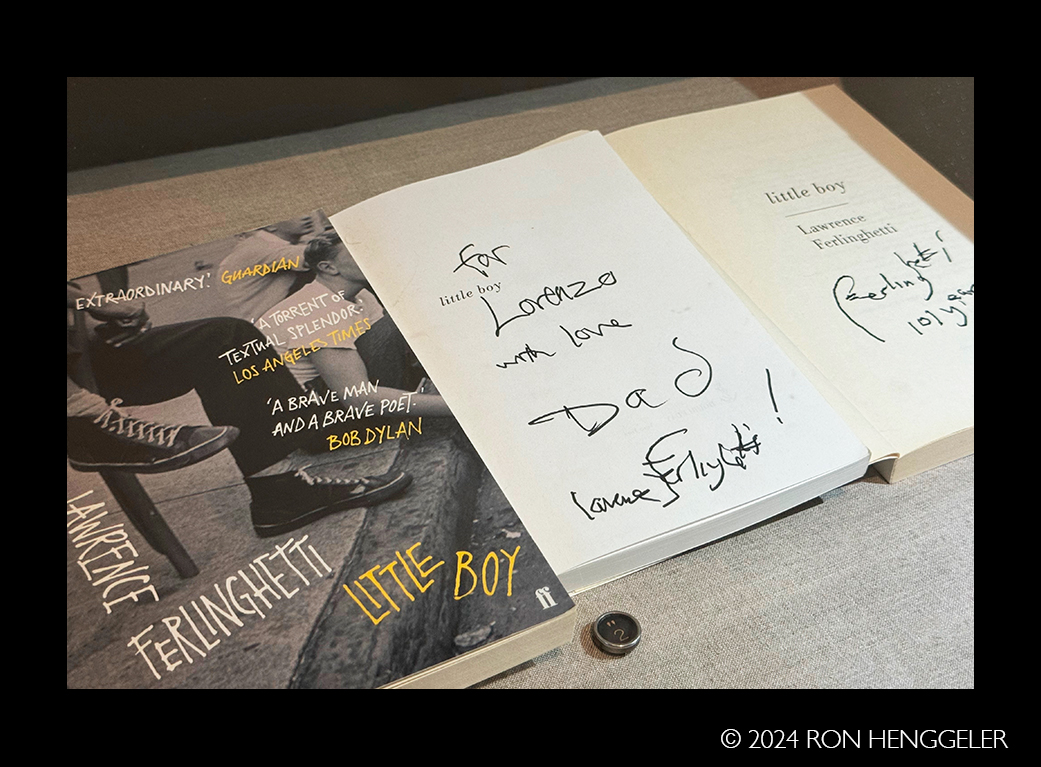 EXTRAORDINARY.' GUARDIAN
'A TORRENT OF
TEXTUAL SPLENDOR.'
LOS ANGELES TIMES
'A BRAVE MAN
AND A BRAVE POET.'
BOB DYLAN
LAWRENCE
FERLINGHETTI
LITTLE BOY
ff
for
little boy
Lorenzo
with love
Dad
!
Lawrence Ferlinghetti
little boy
Lawrence
Ferlinghetti
Ferlinghetti
101 years
"
2
© 2024 RON HENGGELER